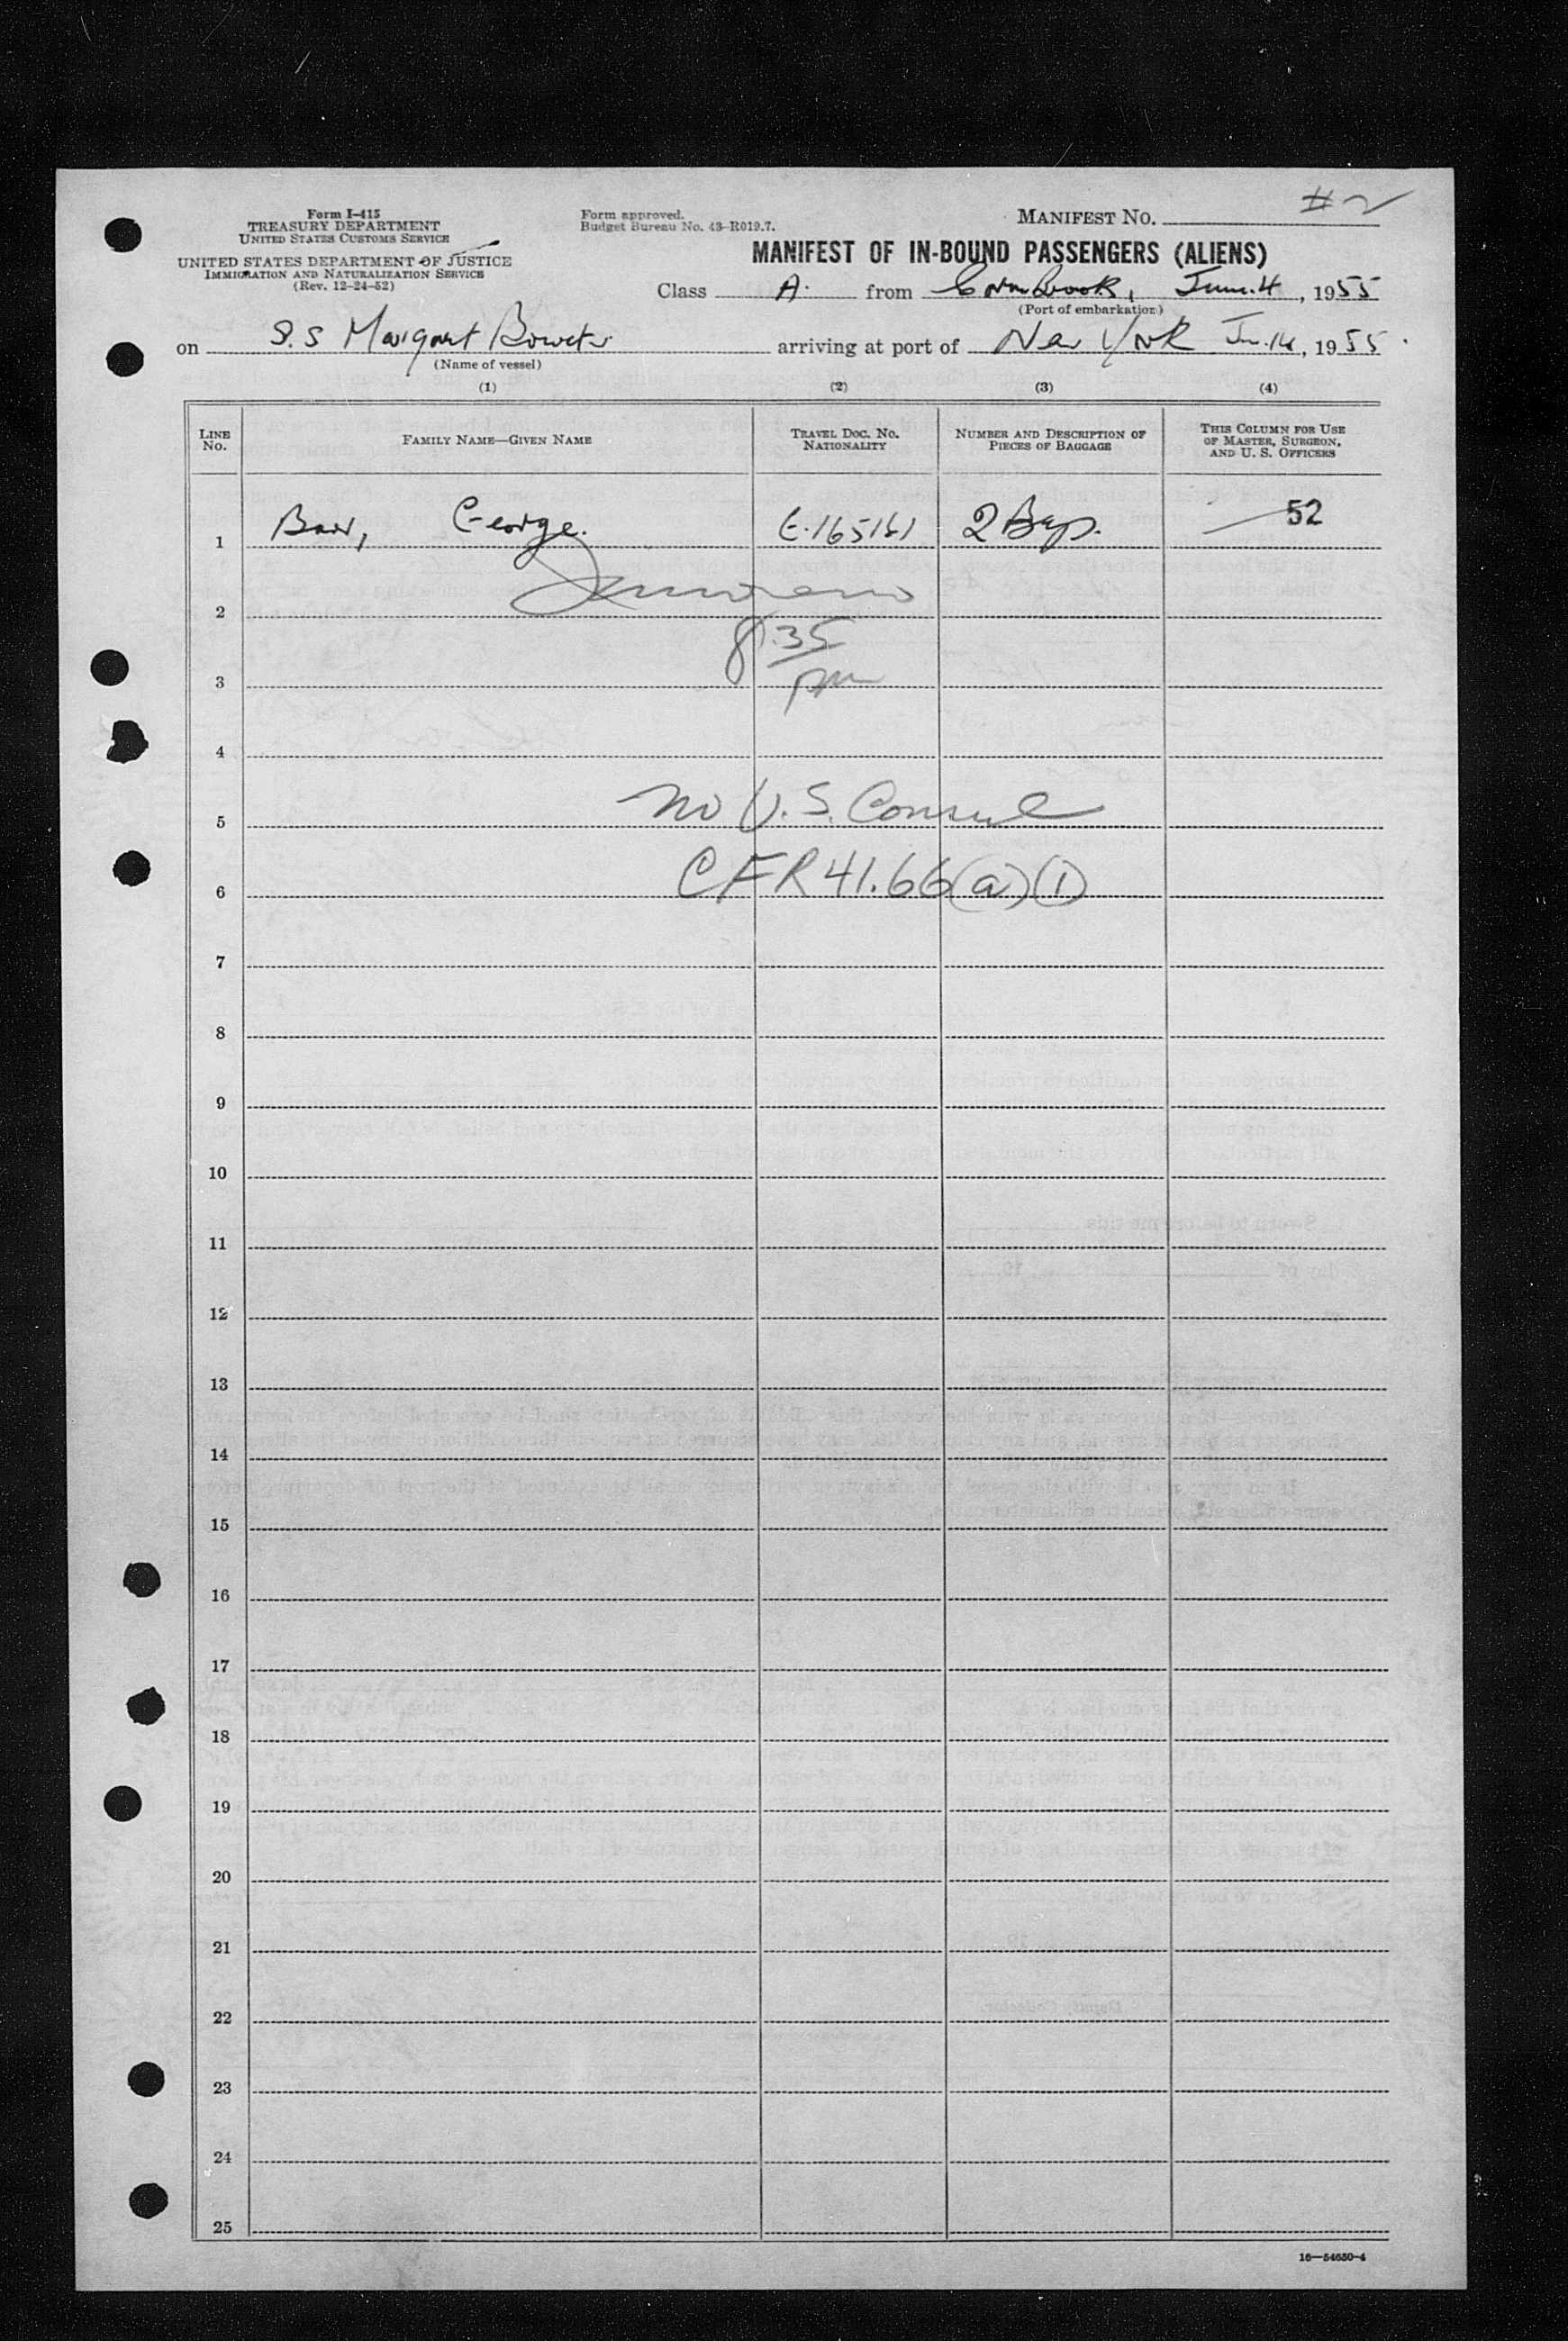 Form I-415
TREASURY DEPARTMENT
UNITED STATES CUSTOMS SERVICE
UNITED STATES DEPARTMENT OF JUSTICE
IMMIGRATION AND NATURALIZATION SERVICE
(Rev. 12-24-52)
Form approved.
Budget Bureau No. 43-R019.7.
MANIFEST NO. #2
MANIFEST OF IN-BOUND PASSENGERS (ALIENS)
Class A. from Cornerbrook, June.4, 1955
(Port of embarkation)
on S.S Margaret Bowater arriving at port of New York Jn.14, 1955.
(Name of vessel)
(1) (2) (3) (4)
LINE NO. FAMILY NAME—GIVEN NAME TRAVEL DOC. NO. NATIONALITY NUMBER AND DESCRIPTION OF PIECES OF BAGGAGE THIS COLUMN FOR USE OF MASTER, SURGEON, AND U. S. OFFICERS
1 George. 2 Bags. 52
2
8:35
3 pm
4
5 no U.S. Consul
6 CFR 41.66(a)(1)
7
8
9
10
11
12
13
14
15
16
17
18
19
20
21
22
23
24
25
16—54650-4